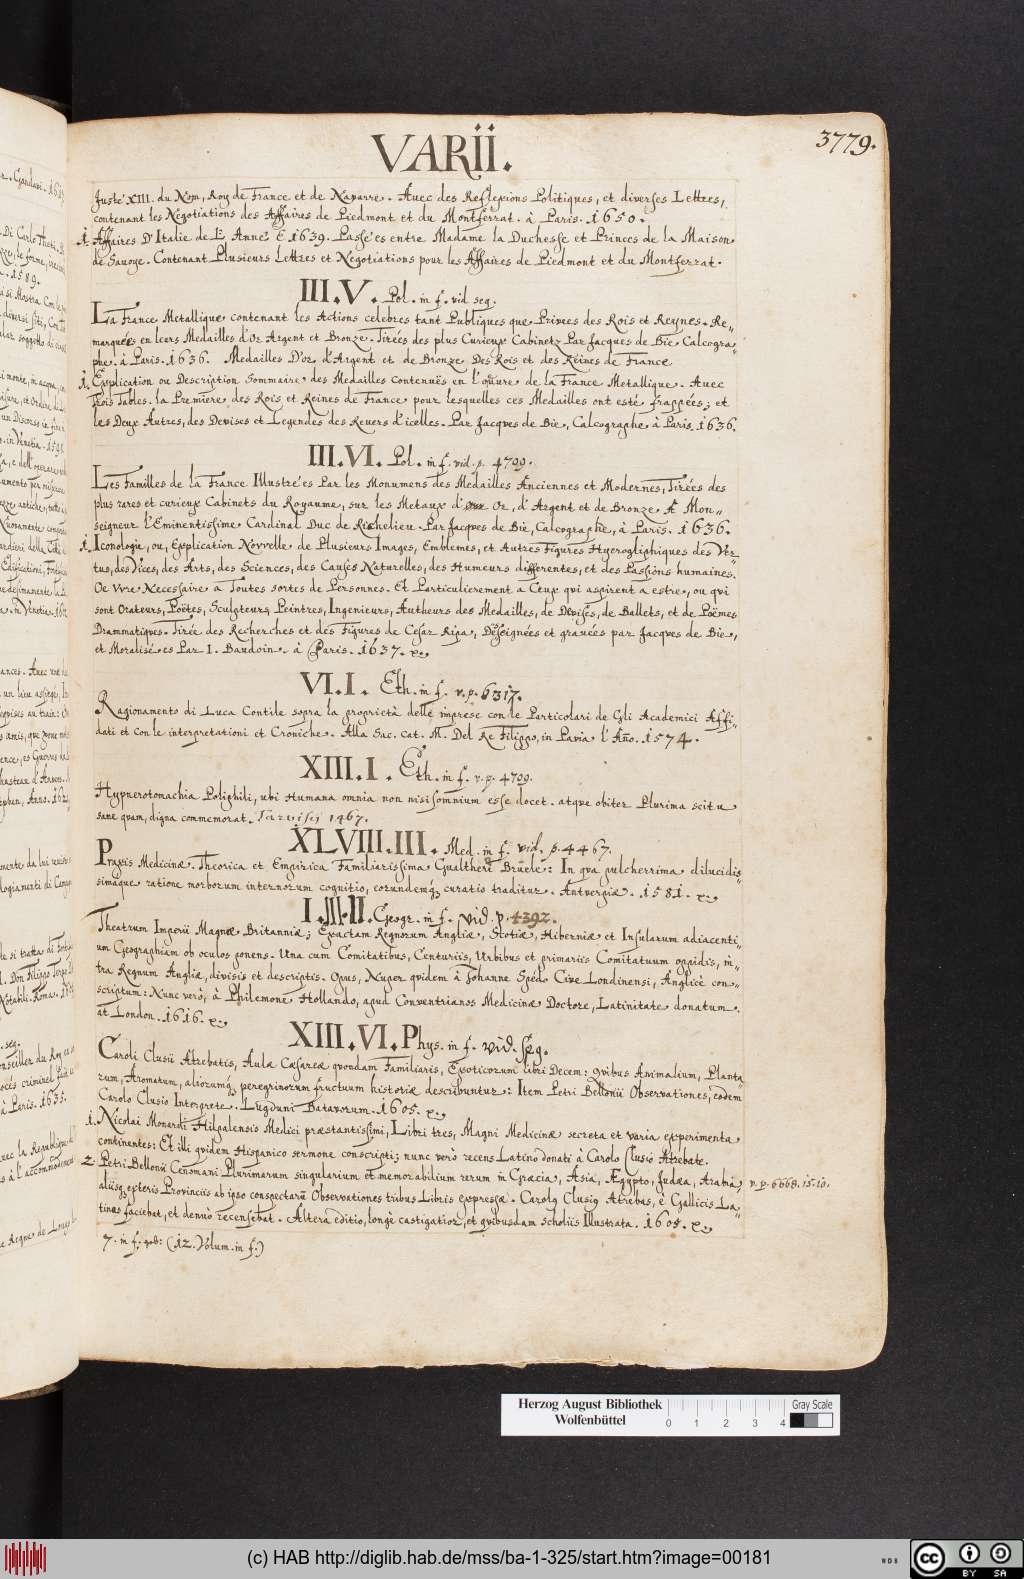 VARII.
3779.
Juste XIII. du Nom, Roy de France et de Navarre. Auec des Reflexions Politiques, et diverses Lettres,
contenant les Negotiations des Affaires de Piedmont et du Montferrat. à Paris. 1650.
1. Affaires D'Italie de L'Anneé 1639. Passées entre Madame la Duchesse et Princes de la Maison
de Sauoye. Contenant Plusieurs Lettres et Negotiations pour les Affaires de Piedmont et du Montferrat.
III.V. Pol. in f. vid seq.
La France Metallique contenant les Actions celebres tant Publiques que Privees des Rois et Reynes. Re„
marqueés en leurs Medailles d'Or Argent et Bronze. Tirées des plus Curieux Cabinetz Par Jacques de Bie Calcogra„
phe. à Paris. 1636. Medailles D'or d'Argent et de Bronze Des Rois et des Reines de France
1. Explication ou Description Sommaire des Medailles contenuës en l'œuure de la France Metallique. Auec
trois Tables. la Premiere des Rois et Reines de France pour lesquelles ces Medailles ont esté frappées; et
les Deux Autres, des Devises et Legendes des Reuers d'icelles. Par Jacques de Bie, Calcographe à Paris. 1636.
III.VI. Pol. in f. vid. p. 4709.
Les Familles de la France Illustrées Par les Monumens des Medailles Anciennes et Modernes, Tirées des
plus rares et curieux Cabinets du Royaume, sur les Metaux d' Or, d'Argent et de Bronze A Mon„
seigneur l'Eminentissime Cardinal Duc de Richelieu. Par Jacques de Bie, Calcographe, à Paris. 1636.
1. Iconologie, ou, Explication Novvelle de Plusieurs Images, Emblemes, et Autres Figures Hyerogliphiques des Ver„
tus, des Vices, des Arts, des Sciences, des Causes Naturelles, des Humeurs differentes, et des Passions humaines.
Oe Vvre Necessaire a Toutes sortes de Personnes. Et Particulierement a Ceux qui aspirent a estre, ou qui
sont Orateurs, Poëtes, Sculpteurs, Peintres, Ingenieurs, Autheurs des Medailles, de Devises, de Ballets, et de Poëmes
Drammatiques. Tirée des Recherches et des Figures de Cesar Ripa, Desseignées et grauées par Jacques de Bie,
et Moralisées Par I. Baudoin. à Paris. 1637. x.
VI.I. Eth. in f. v. p. 6317.
Ragionamento di Luca Contile sopra la proprietà delle imprese con le Particolari de Gli Academici Affi„
dati et con le interpretationi et Croniche. Alla Sac. cat. M. Del Re Filippo, in Pavia l'Año. 1574.
XIII.I. Eth. in f. v. p. 4709.
Hypnerotomachia Poliphili, ubi Humana omnia non nisi somnium esse docet. atque obiter Plurima scitu
sane quam, digna commemorat. Tarvisij 1467.
XLVIII.III. Med. in f. vid. p. 4467.
Praxis Medicinæ Theorica et Empirica Familiarissima Gualtheri Bruele: In qva pulcherrima dilucidis„
simaque ratione morborum internorum cognitio, eorundemq3 curatio traditur. Antverpiæ. 1581. x.
I.III.II. Geogr. in f. Vid. p. 4392.
Theatrum Imperii Magnæ Britanniæ; Exactam Regnorum Angliæ, Scotiæ, Hiberniæ et Insularum adiacenti„
um Geographiam ob oculos ponens. Una cum Comitatibus, Centuriis, Urbibus et primariis Comitatuum oppidis, in„
tra Regnum Angliæ, divisis et descriptis. Opus, Nuper qvidem à Johanne Spédo Cive Londinensi, Anglicè con„
scriptum: Nunc verò, à Philemone Hollando, apud Conventrianos Medicinæ Doctore, Latinitate donatum.
at London. 1616. x.
XIII.VI. Phys. in f. vid. seq.
Caroli Clusii Atrebatis, Aulæ Cæsareæ qvondam Familiaris, Exoticorum libri Decem: qvibus Animalium, Planta
rum, Aromatum, aliorumq3 peregrinorum fructuum historiæ describuntur: Item Petri Bellonii Observationes, eodem
Carolo Clusio Interprete. Lugduni Batavorum. 1605. x.
1. Nicolai Monardi Hispalensis Medici præstantissimi, Libri tres, Magni Medicinæ secreta et varia experimenta
continentes: Et illi qvidem Hispanico sermone conscripti; nunc verò recens Latino donati à Carolo Clusio Atrebate.
2. Petri Bellonii Cenomani Plurimarum singularium et memorabilium rerum in Græcia, Asia, Ægypto, Judæa, Arabia,
v. p. 6668. 15. 10.
aliisq3 exteris Provinciis ab ipso conspectarũ Observationes tribus Libris expressæ. Carolus Clusius Atrebas, è Gallicis La„
tinas faciebat, et denuò recensebat. Altera editio, longè castigatior, et qvibusdam Scholiis Illustrata. 1605. x.
7. in f. qod: (12. Volum. in f.)
Herzog August Bibliothek
Wolfenbüttel
0 1 2 3 4
Gray Scale
(c) HAB http://diglib.hab.de/mss/ba-1-325/start.htm?image=00181
WDB
cc BY SA